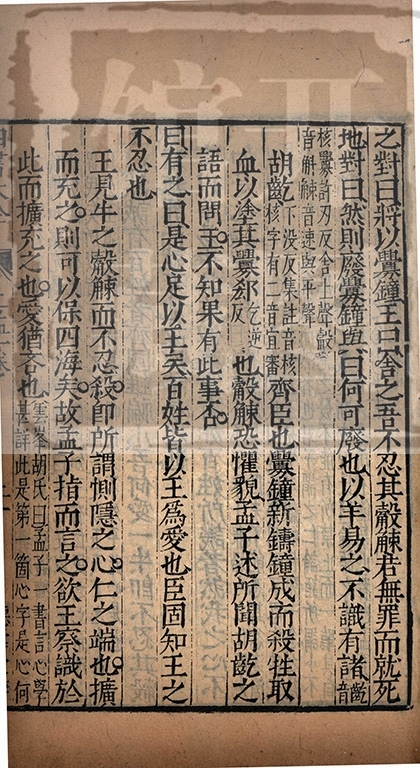 之對曰將以釁鐘王曰舍之吾不忍其觳觫若無罪而就死
地對曰然則廢釁鐘與曰何可廢也以羊易之不識有諸齕音
核釁許刃反舍上聲觳
音斛觫音速與平聲
胡齕下没反集註音核
核字有二音宜審齊臣也釁鐘新鑄鐘成而殺牲取
血以塗其釁郄乞逆
反也觳觫恐懼貌孟子述所聞胡齕之
語而問王不知果有此事否
曰有之曰是心足以王矣百姓皆以王爲愛也臣固知王之
不忍也
王見牛之觳觫而不忍殺即所謂惻隱之心仁之端也擴
而充之則可以保四海矣故孟子指而言之欲王察識於
此而擴充之也愛猶吝也雲峯胡氏曰孟子一書言心學
甚詳此是第一箇心字是心何